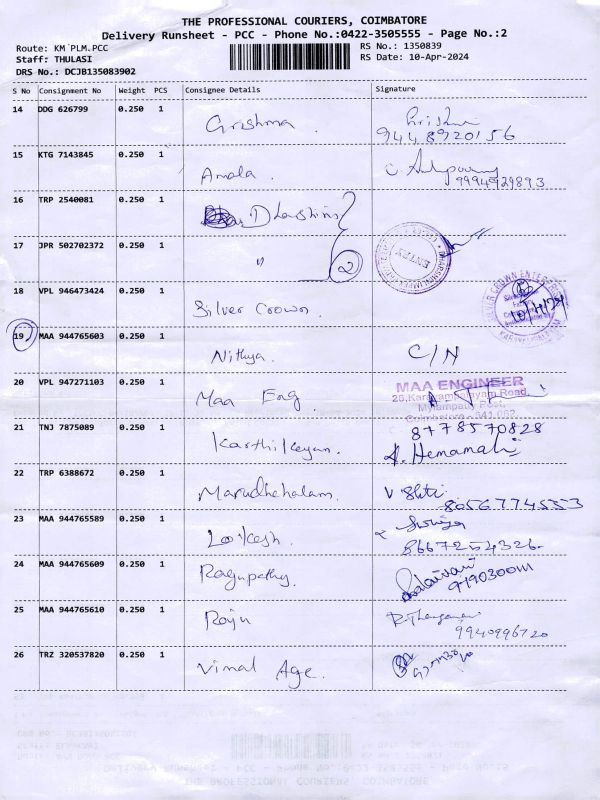 THE PROFESSIONAL COURIERS, COIMBATORE
Delivery Runsheet - PCC - Phone No.:0422-3505555 - Page No.:2
Route: KM PLM.PCC
RS No.: 1350839
Staff: THULASI
RS Date: 10-Apr-2024
DRS No.: DCJB135083902
S No Consignment No Weight PCS Consignee Details Signature
14 DDG 626799 0.250 1 Grishma
9448920156
15 KTG 7143845 0.250 1 Amala
9994929893
16 TRP 2540081 0.250 1 Dharshini
17 JPR 502702372 0.250 1 " 2
18 VPL 946473424 0.250 1 Silver Crown
19 MAA 944765603 0.250 1 Nithya C/N
20 VPL 947271103 0.250 1 Maa Eng
MAA ENGINEER
21 TNJ 7875089 0.250 1 Karthikeyan 8778570828
A. Hemamah
22 TRP 6388672 0.250 1 Marudhehalam. V
8056774553
23 MAA 944765589 0.250 1 Lokesh
8667254326
24 MAA 944765609 0.250 1 Ragupathy
25 MAA 944765610 0.250 1 Raju
9940996720
26 TRZ 320537820 0.250 1 Vimal Age.